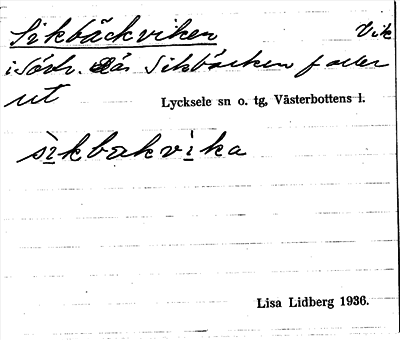 Sikbäckviken Vik
i Sörtr. där Sikbäcken faller
ut Lycksele sn o. tg, Västerbottens l.
sikbækvika
Lisa Lidberg 1936.